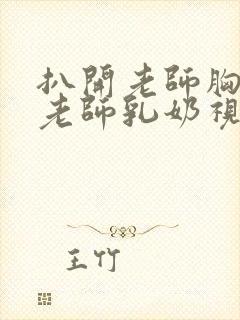 扒開老師胸
老師乳奶視
王竹